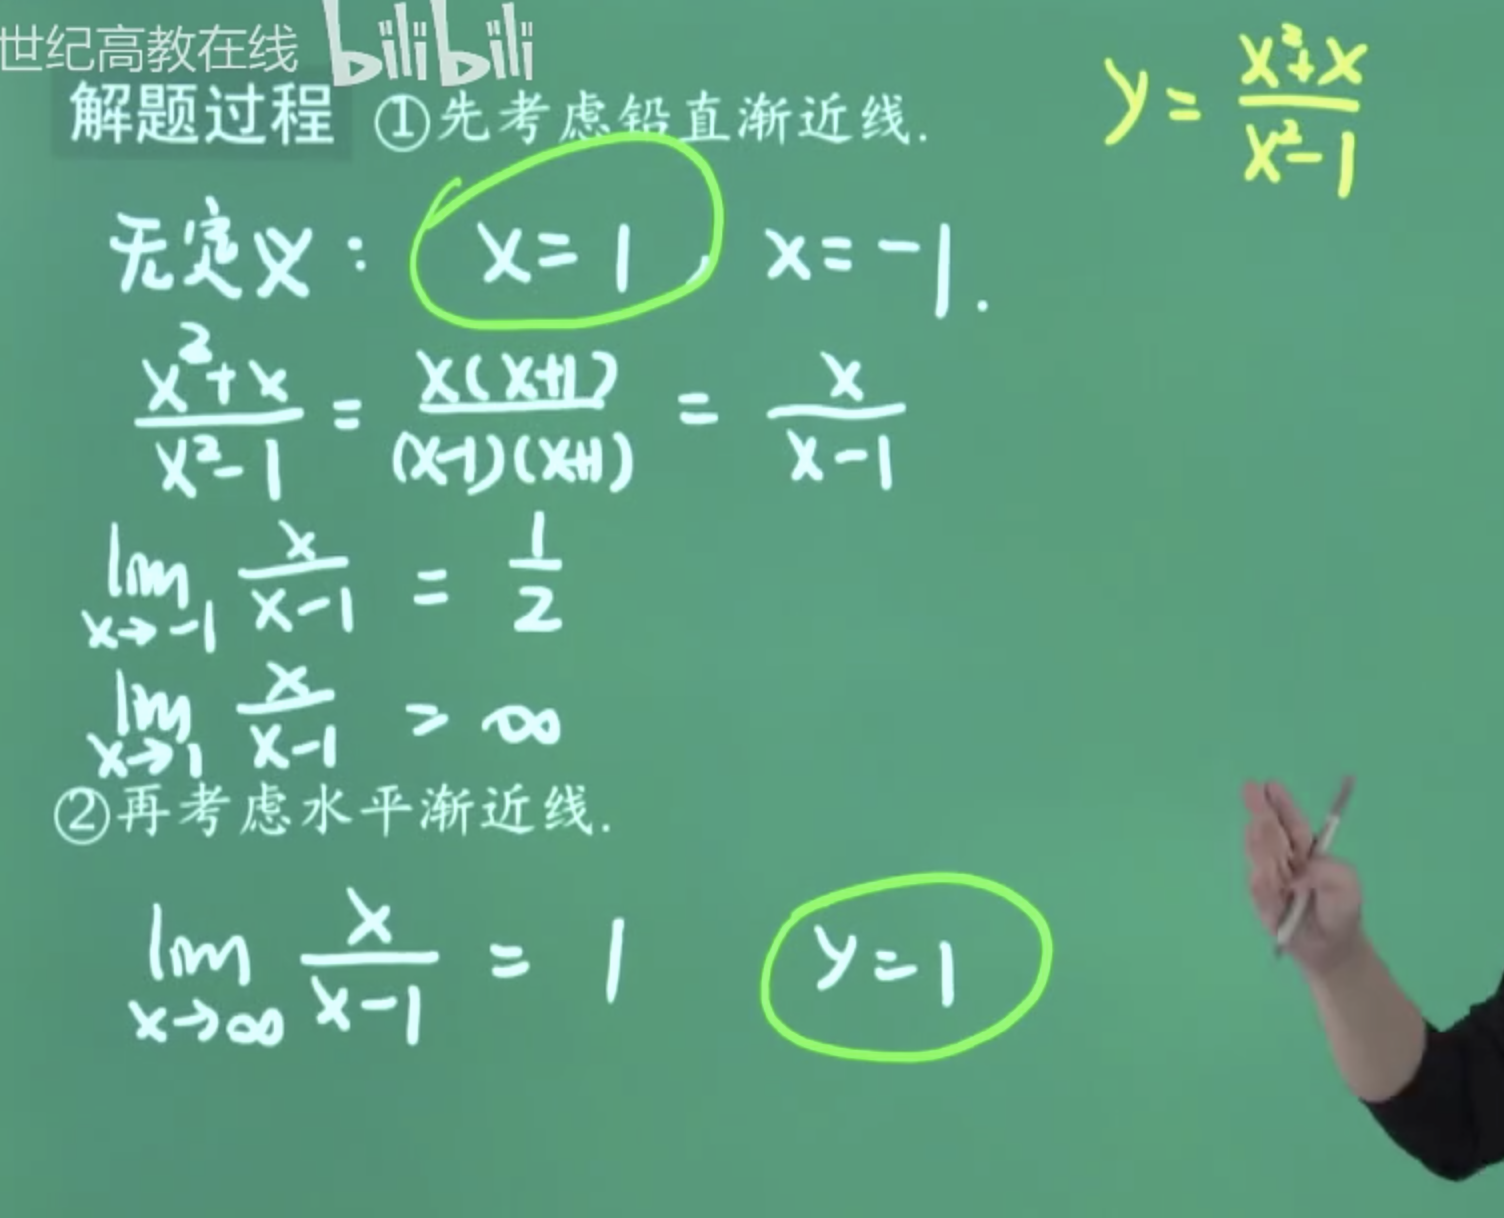 世纪高教在线 bilibili
解题过程 ①先考虑铅直渐近线.
y = (x²+x)/(x²-1)
无定义: x=1, x=-1.
(x²+x)/(x²-1) = x(x+1)/((x-1)(x+1)) = x/(x-1)
lim x→-1 x/(x-1) = 1/2
lim x→1 x/(x-1) = ∞
②再考虑水平渐近线.
lim x→∞ x/(x-1) = 1 y=1